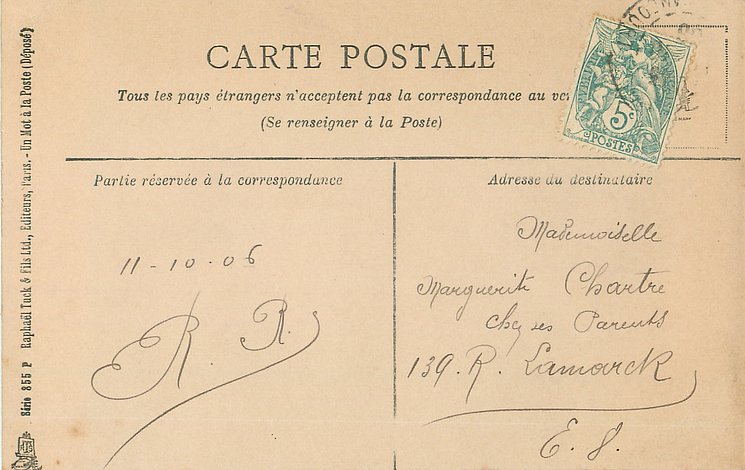 CARTE POSTALE
Tous les pays étrangers n'acceptent pas la correspondance au
(Se renseigner à la Poste)
5c
POSTES
Partie réservée à la correspondance
11-10-06
R. R.
Adresse du destinataire
Mademoiselle
Marguerite Chartre
Chez ses Parents
139. R. Lamarck
E. S.
Série 855 P Raphaël Tuck & Fils Ltd., Editeurs, Paris. - Un Mot à la Poste (Déposé)